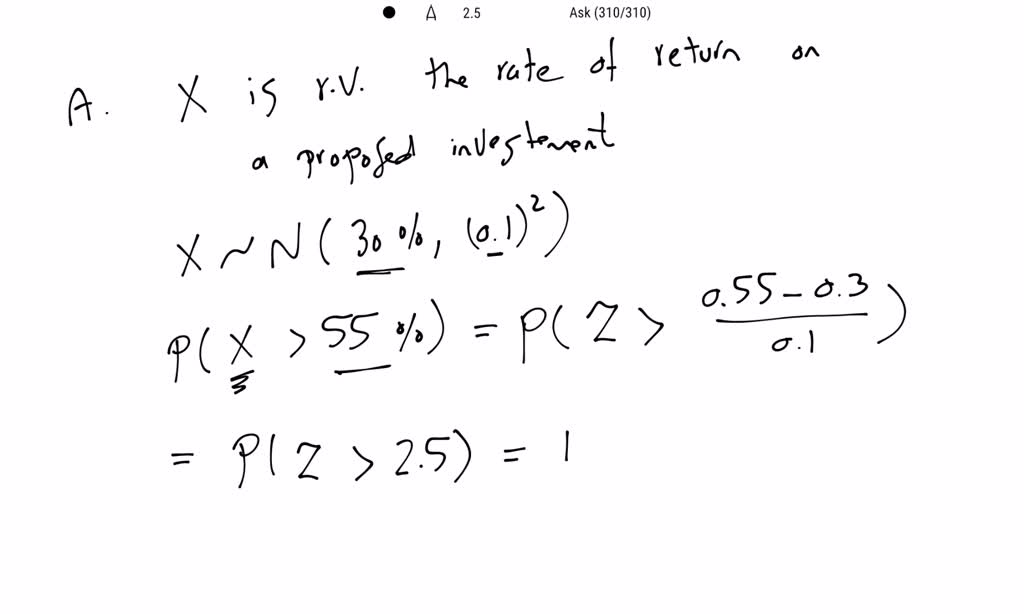 A 2.5 Ask (310/310)
A. X is r.V. the rate of return on
a proposed investement
X ~ N ( 30 %, (0.1)² )
P( X > 55 % ) = P( Z > (0.55 - 0.3)/0.1 )
= P( Z > 2.5 ) = 1